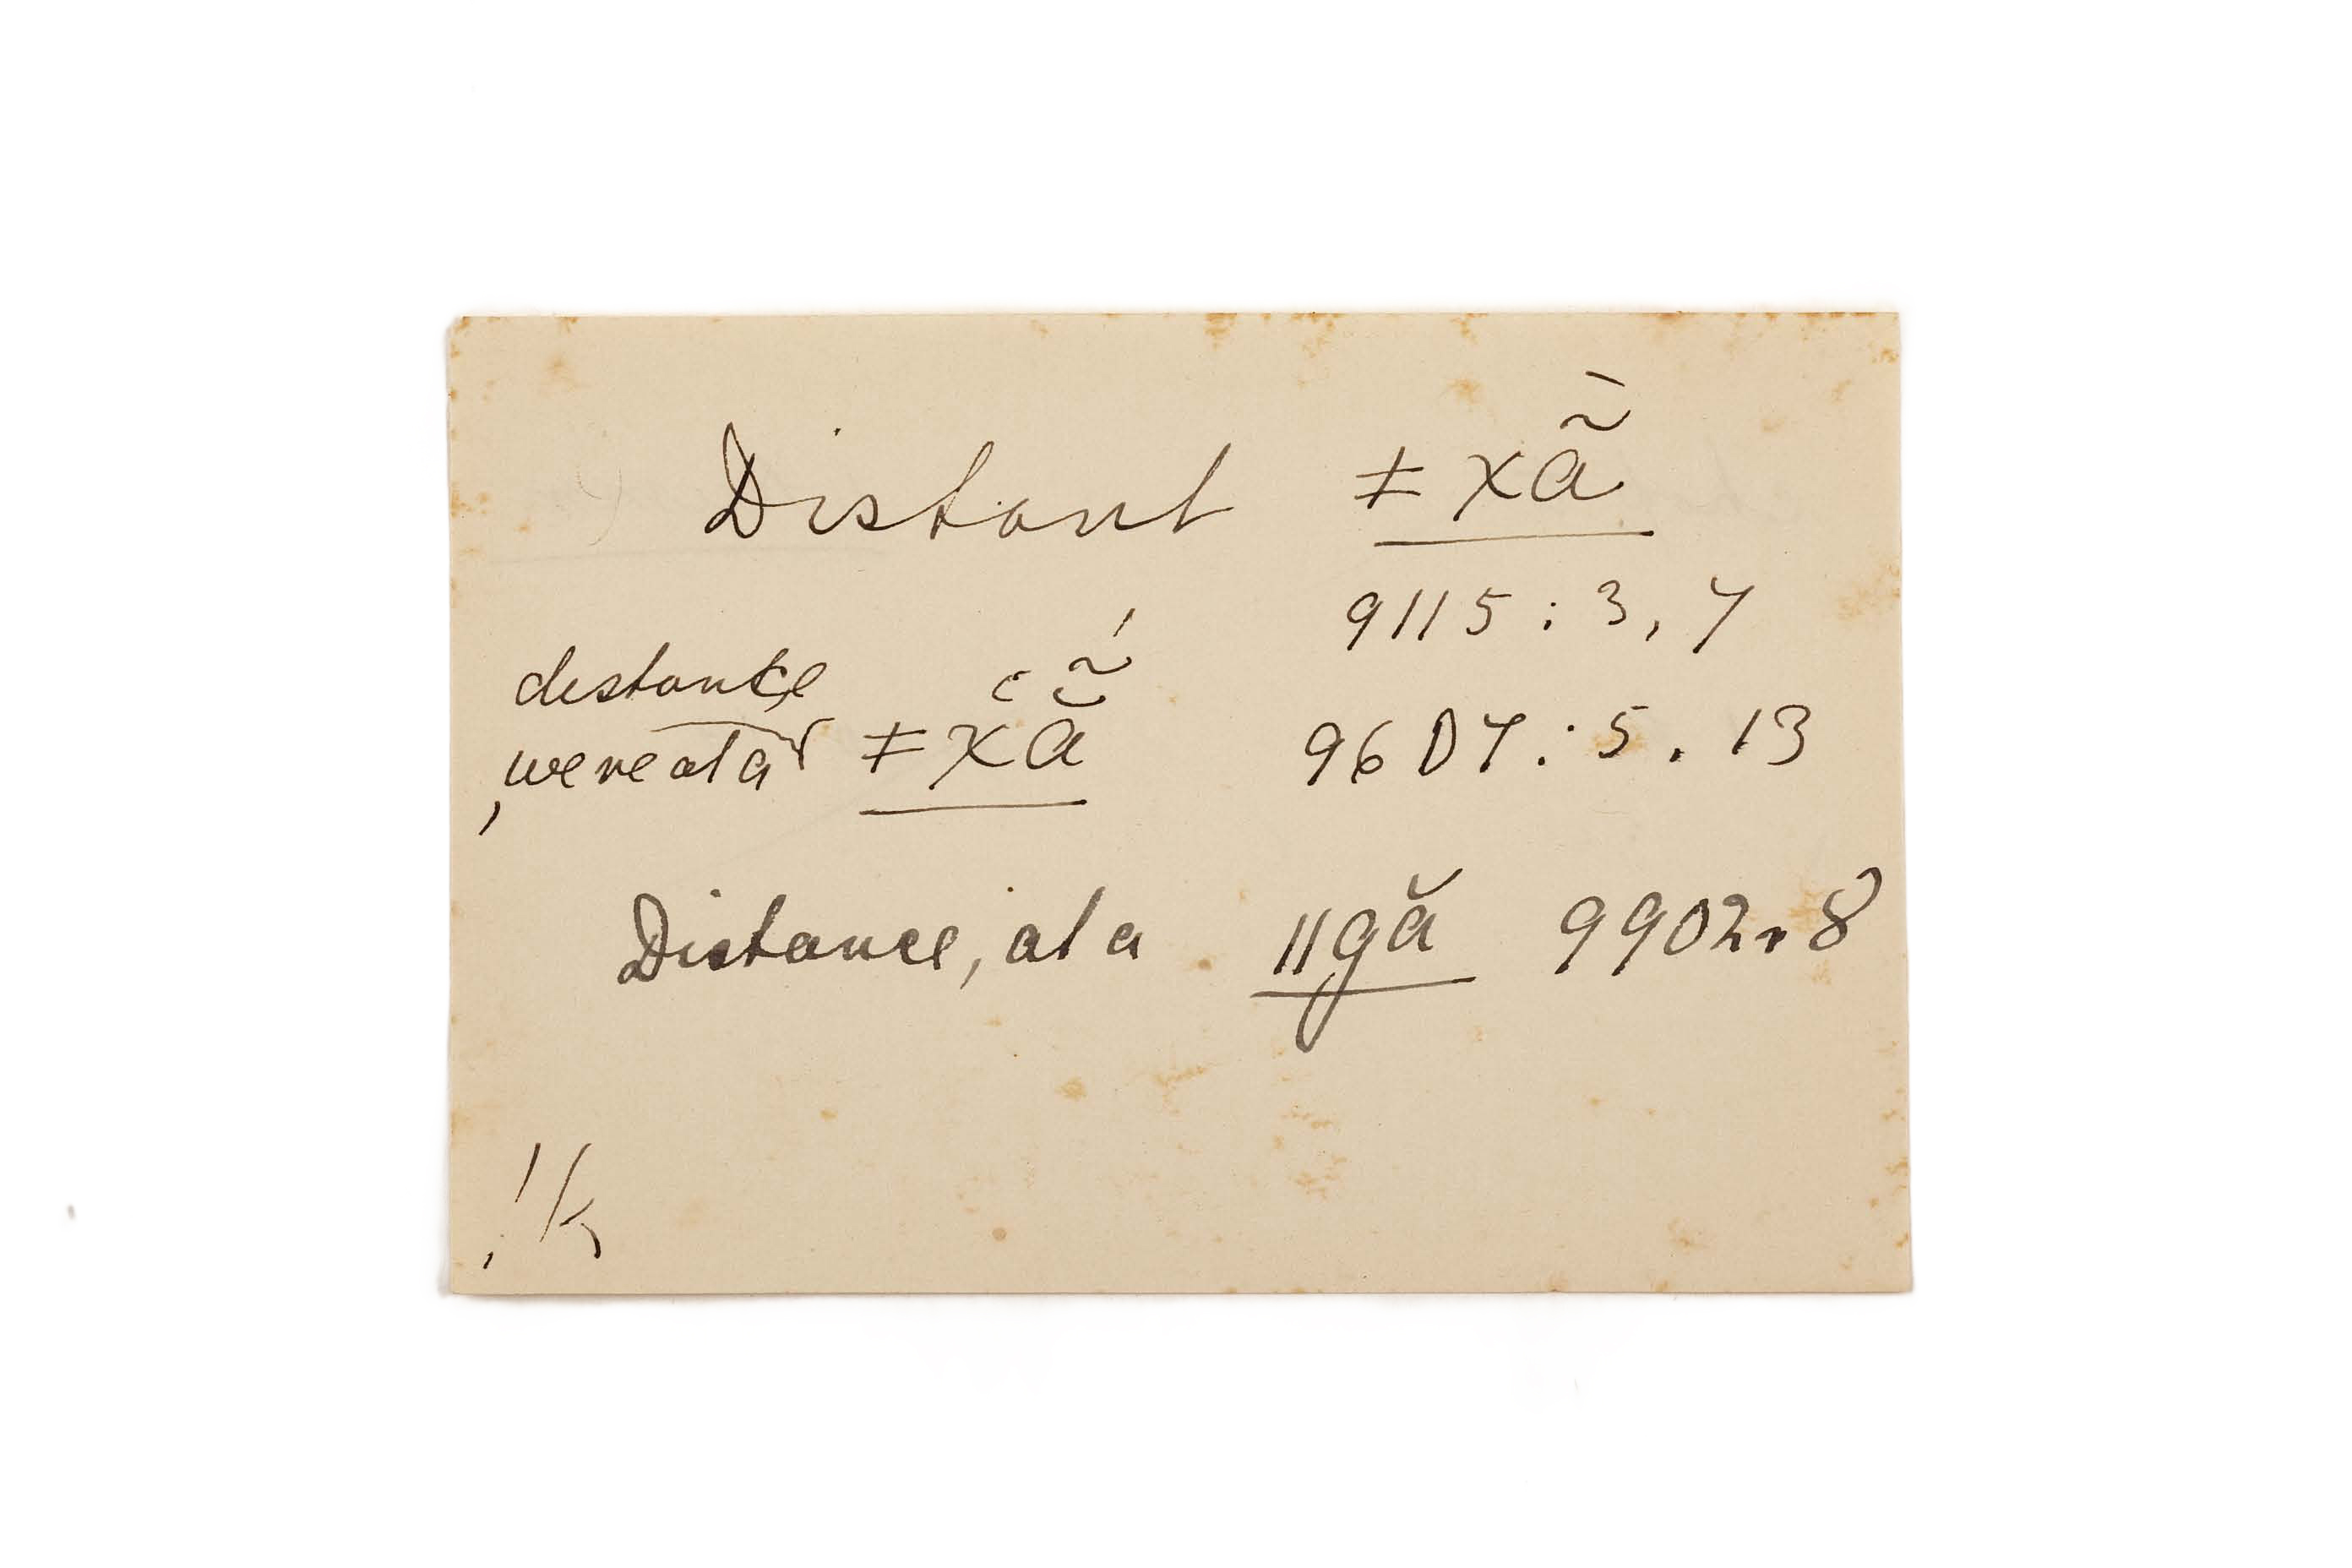 Distant ǂ xã̄
9115 : 3, 7
distance
, were at a ǂ xã̆́ 9607 : 5. 13
Distance, at a ǁgă 9902. 8
, !k